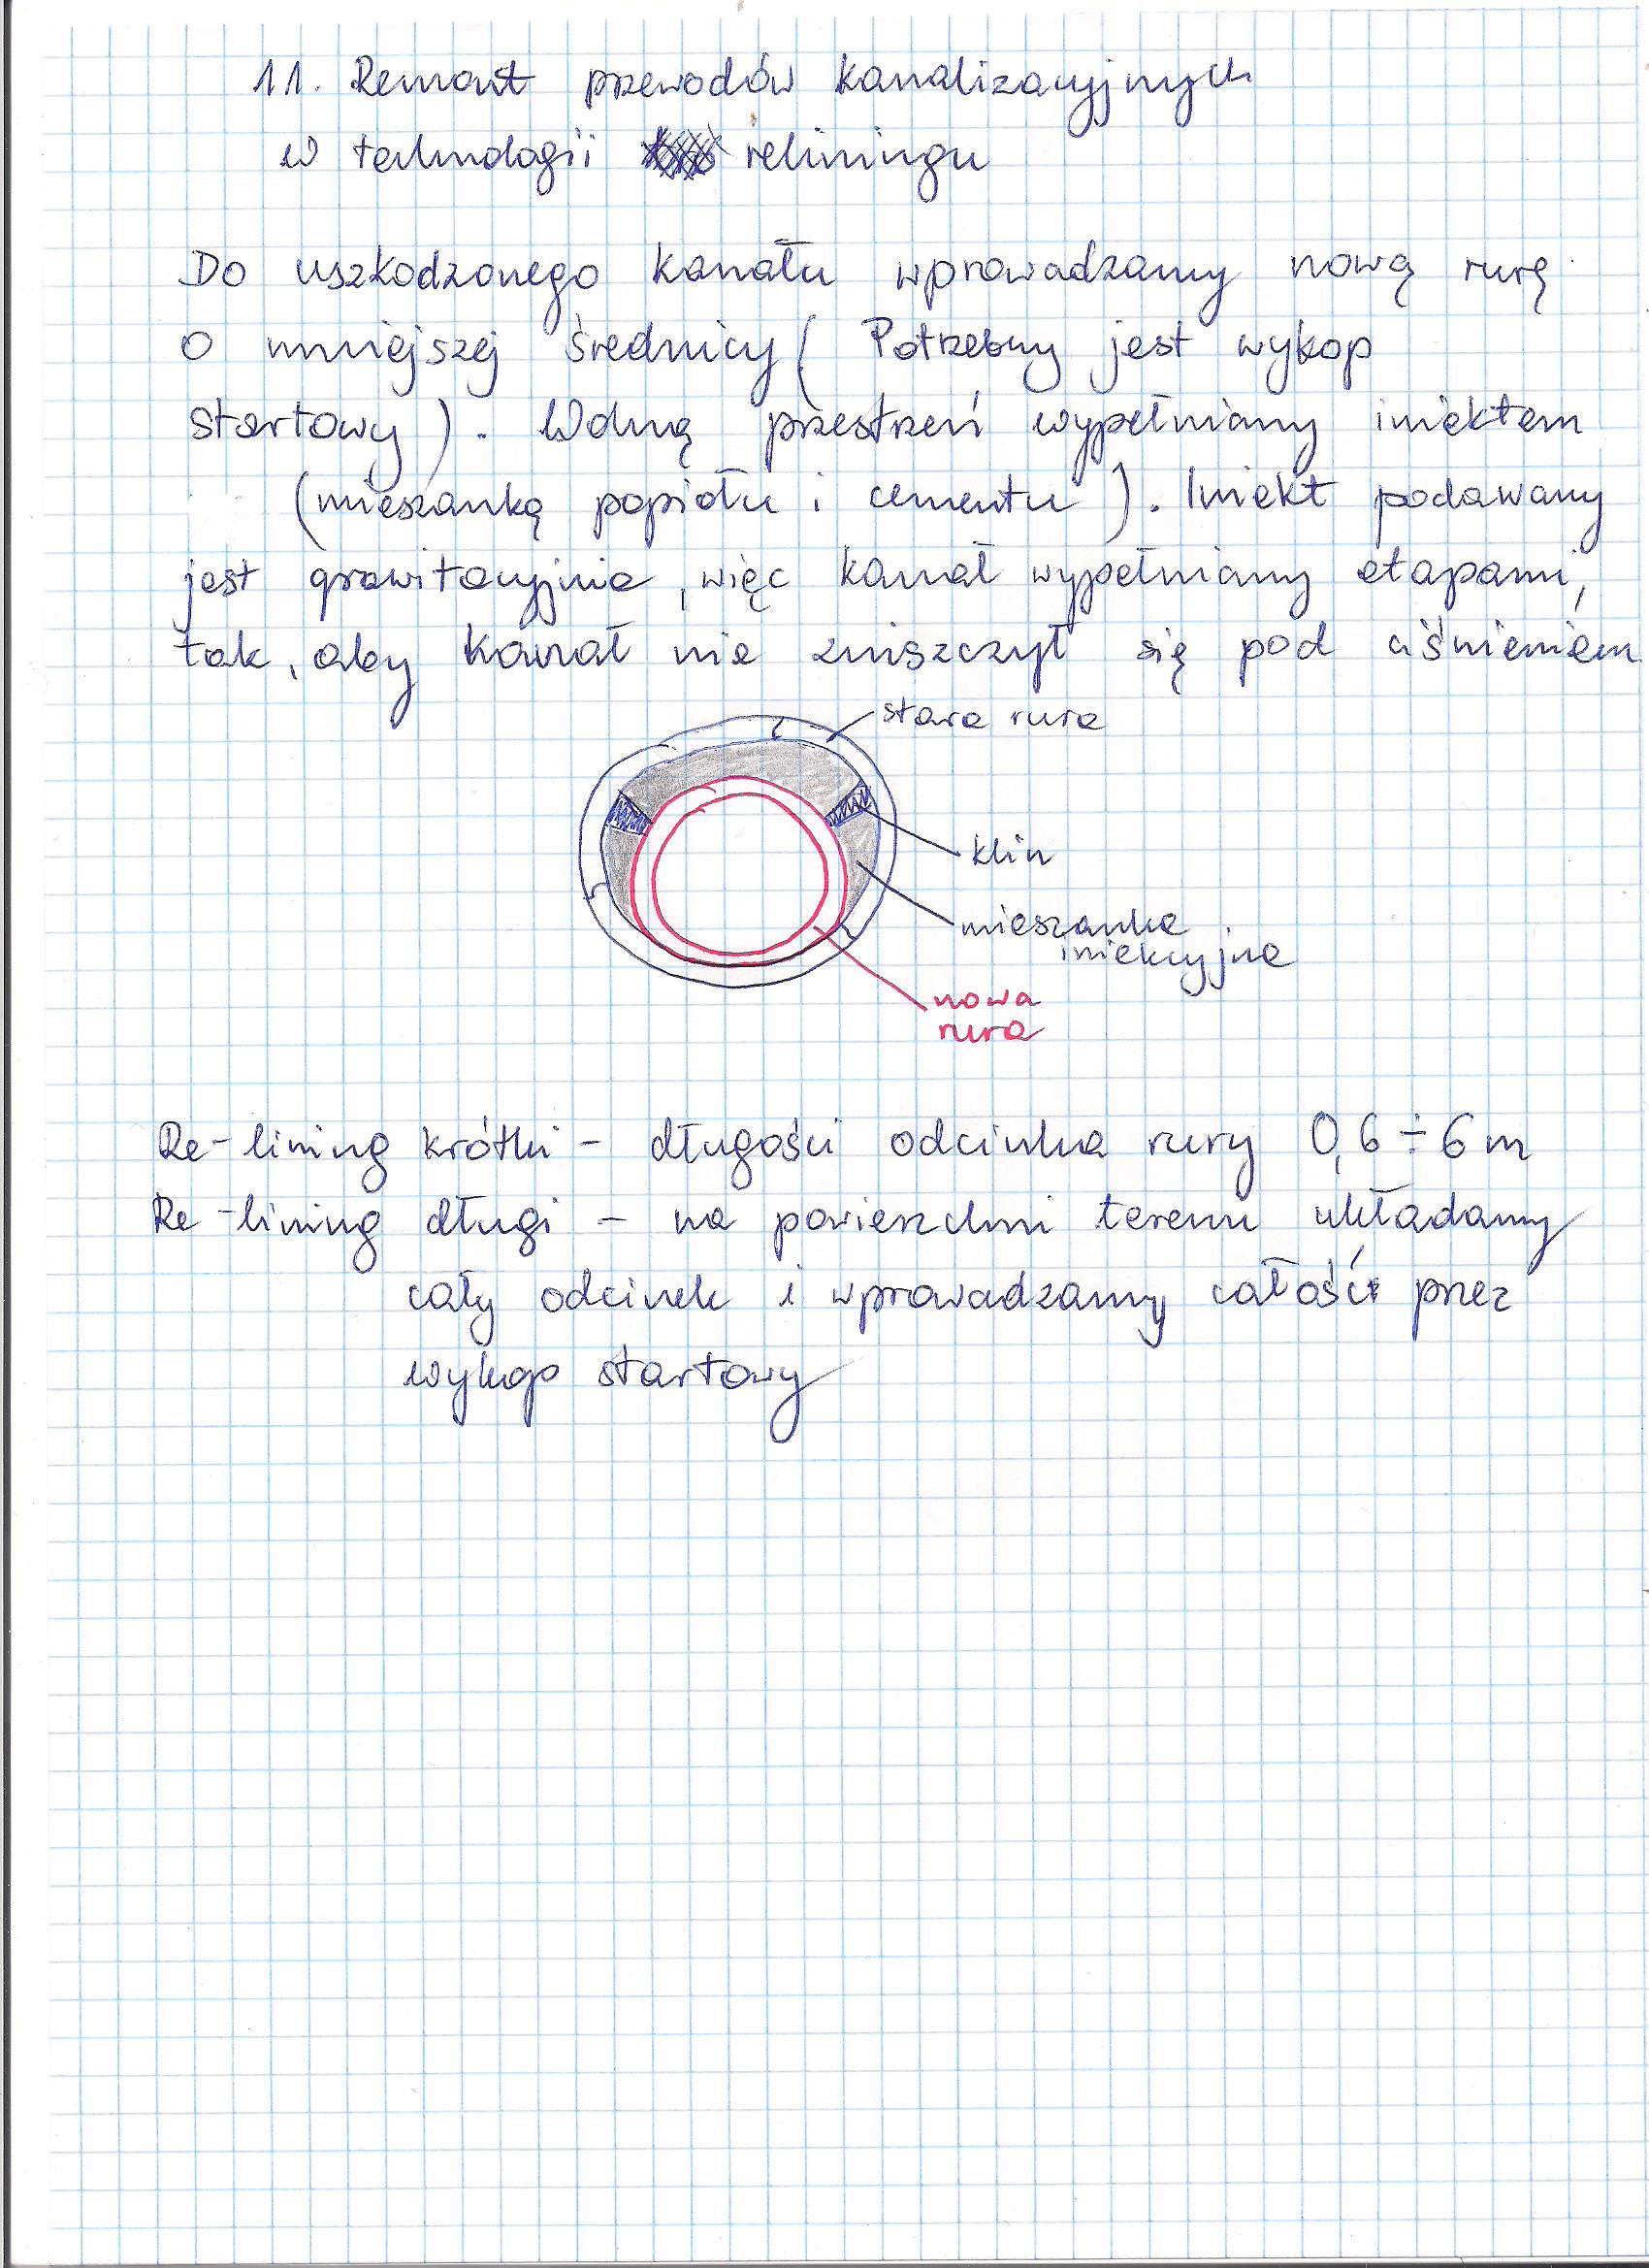 11. Remont przewodów kanalizacyjnych
w technologii reliningu
Do uszkodzonego kanału wprowadzamy nową rurę
o mniejszej średnicy ( Potrzebny jest wykop
startowy ). Wolną przestrzeń wypełniamy iniektem
(mieszanką popiołu i cementu ). Iniekt podawany
jest grawitacyjnie, więc kanał wypełniamy etapami,
tak, aby kanał nie zniszczył się pod ciśnieniem
stara rura
klin
mieszanka
iniekcyjna
nowa
rura
Re-lining krótki - długości odcinka rury 0,6 ÷ 6 m
Re-lining długi - na powierzchni terenu układamy
cały odcinek i wprowadzamy całość przez
wykop startowy